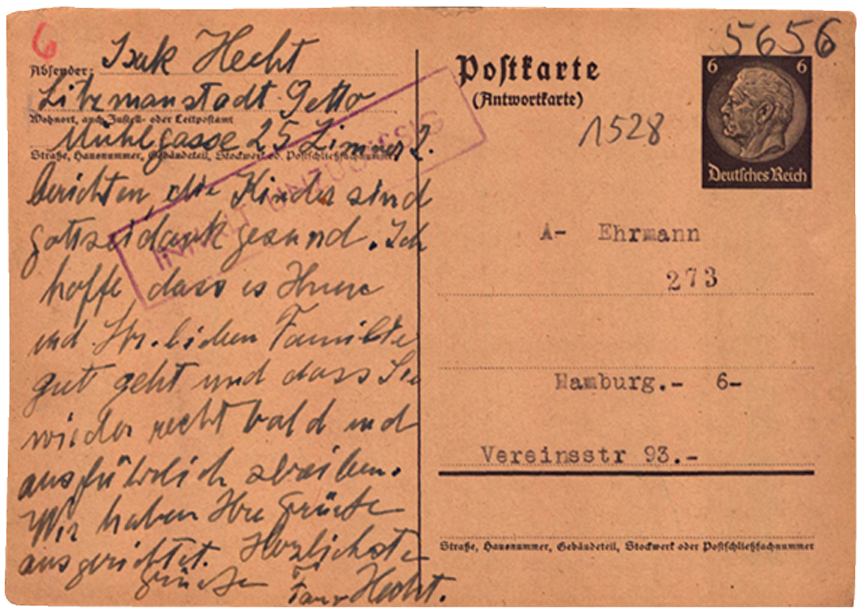 6
Absender: Isak Hecht
Litzmanstadt Getto
Wohnort, auch Zustell- oder Leitpostamt
Mühlgasse 25 Zimmer 2.
Straße, Hausnummer, Gebäudeteil, Stockwerk od. Postschließfachnummer
INHALT UNZULÄSSIG
berichten, die Kinder sind
gottseidank gesund. Ich
hoffe, dass es Ihnen
und Ihr. lieben Familie
gut geht und dass Sie
wieder recht bald und
ausführlich schreiben.
Wir haben Ihre Grüsse
ausgerichtet. Herzlichste
Grüsse
Hecht.
5656
Postkarte
(Antwortkarte)
1528
6 6
Deutsches Reich
A- Ehrmann
273
Hamburg.- 6-
Vereinsstr 93.-
Straße, Hausnummer, Gebäudeteil, Stockwerk oder Postschließfachnummer